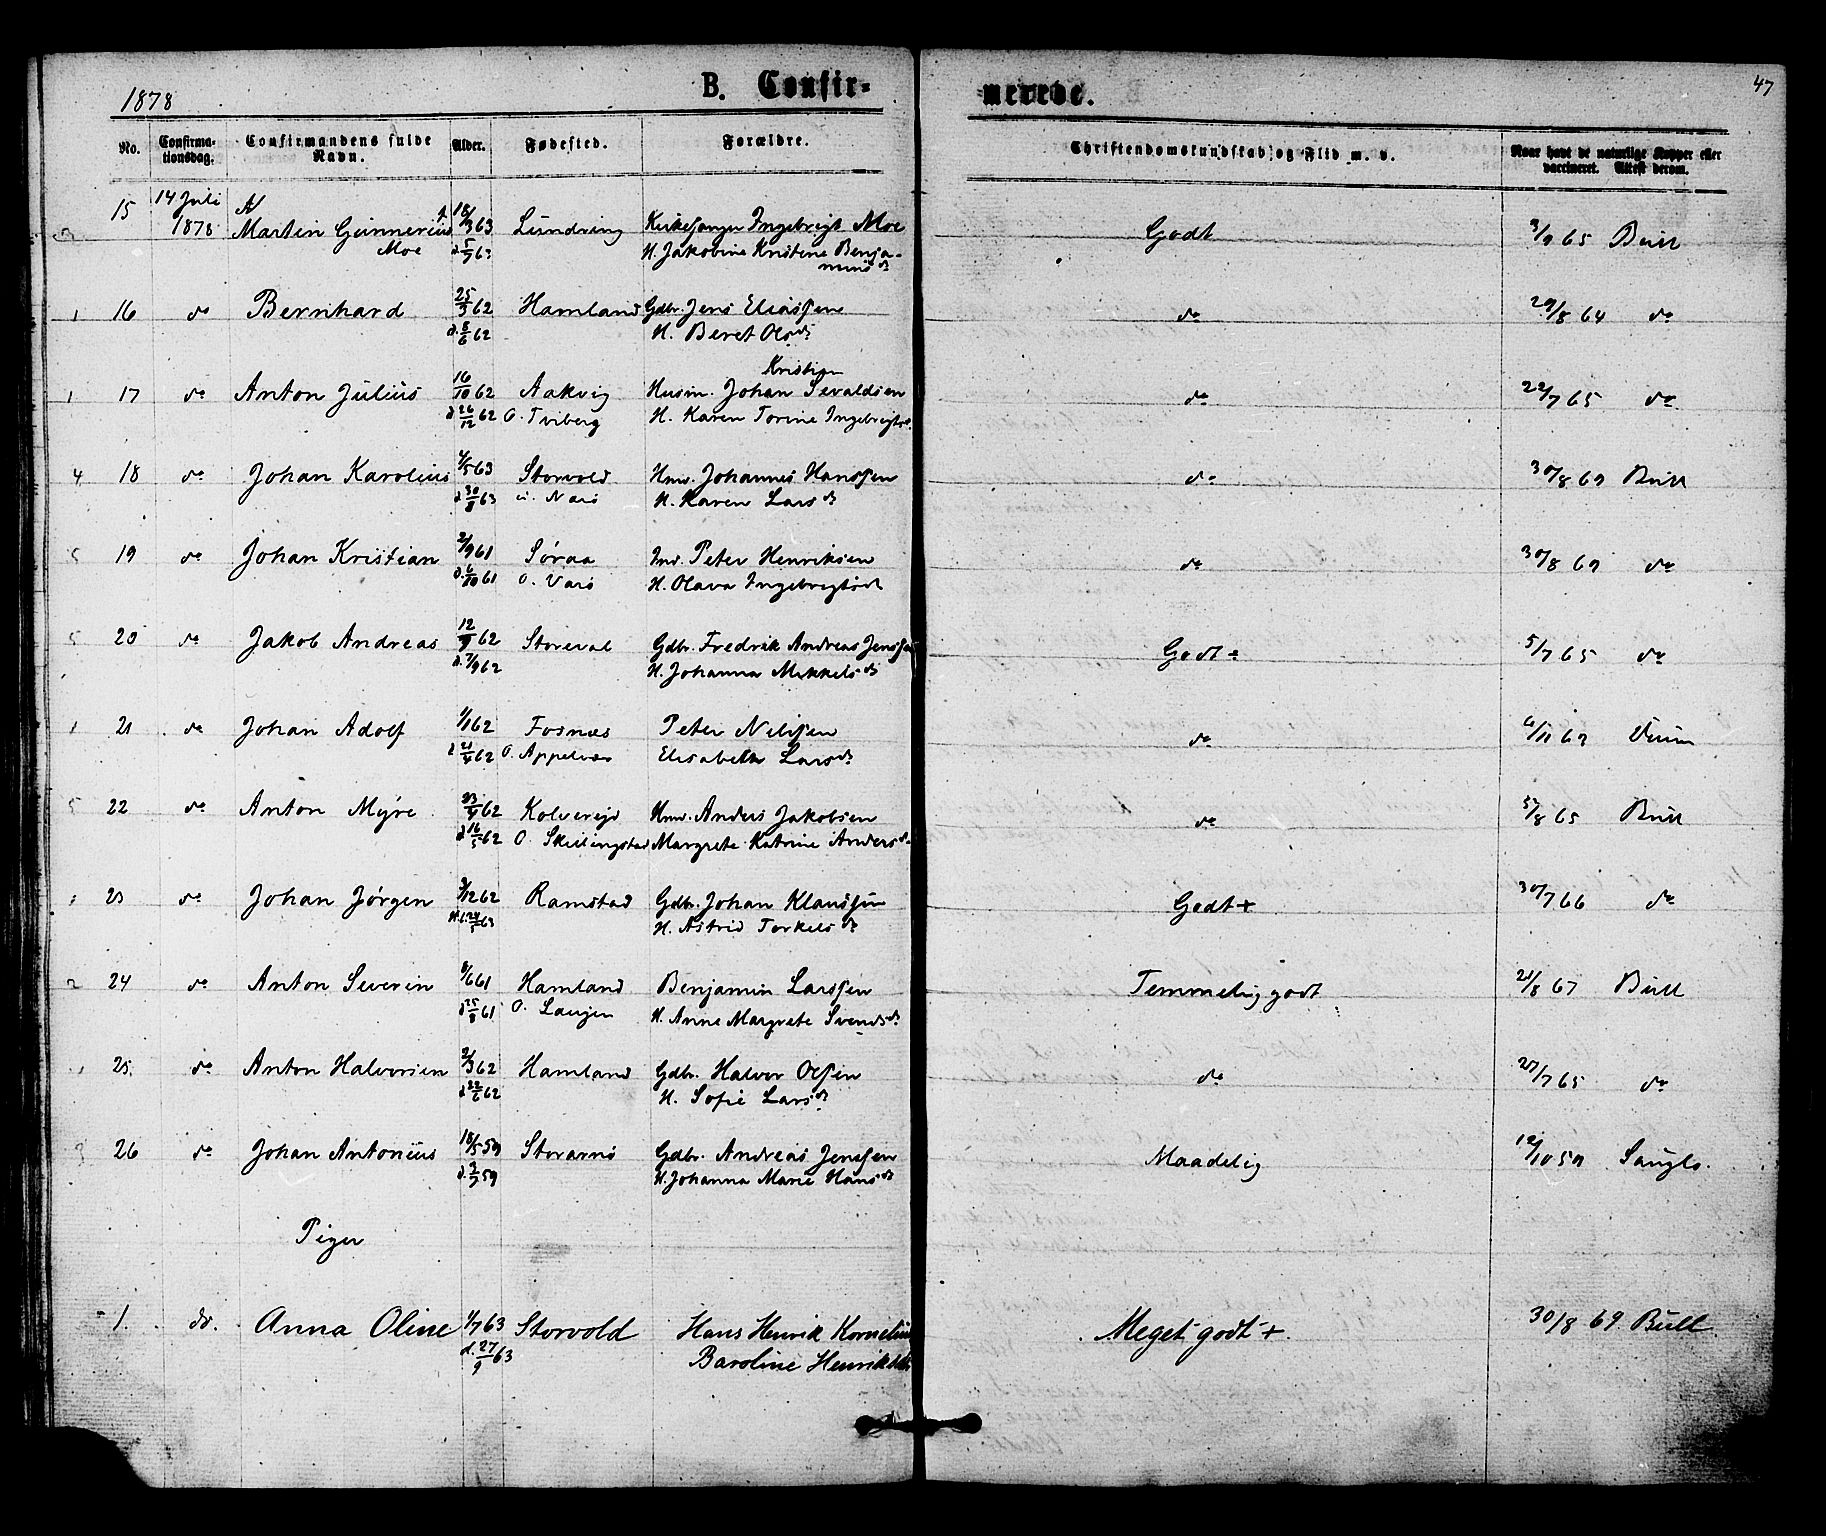 1878
B. Confir-
merede.
47
No.
Confirma-
tionsdag.
Confirmandens fulde
Navn.
Alder.
Fødested.
Forældre.
Christendomskundskab og Flid m. v.
Naar havt de naturlige Kopper eller
vaccineret. Attest derom.
15 14 Juli 1878 Martin Gunnerius Moe 63 Lundring Kirkesanger Ingebrigt Moe Godt 3/9 65 Bull
H. Jakobine Kristine Benja-
mins d
1 16 do Bernhard 25/3 62 Hamland Gdbr. Jens Eliassen do 29/8 64 do
d. 8/6 62 H. Beret Olsd
Kristian
1 17 do Anton Julius 16/10 62 Aakvig Husm. Johan Sevaldsen do 22/7 65 do
d 26/12 62 O. Tviberg H. Karen Torine Ingebrigtsd.
4 18 do Johan Karolius 4/5 63 Storvold Hmd. Johannes Hanssen do 30/8 69 Bull
d 30/8 63 H. Karen Lars d
5 19 do Johan Kristian 2/9 61 Søraa Ind. Peter Henriksen do 30/8 69 do
d. 6/10 61 O. Værø H. Olava Ingebrigtsd
5 20 do Jakob Andreas 12/7 62 Storeval Gdbr. Fredrik Andreas Jenssen Godt÷ 5/7 65 do
d. 7/9 62 H. Johanna Mikkels d
1 21 do Johan Adolf 1/1 62 Fosnæs Peter Nilssen do 6/11 69
d 21/4 62 O. Appelvær Elisabeth Lars d
5 22 do Anton Myre 23/4 62 Kolvereid Hmd. Anders Jakobsen do 5/8 65 Bull
d 16/5 62 O. Skillingstad Margrete Katrine Anders d
23 do Johan Jørgen 3/12 62 Ramstad Gdbr. Johan Klaussen Godt+ 30/7 66 do
63 H. Astrid Torkels d
2 24 do Anton Severin 8/6 61 Hamland Benjamin Larssen Temmelig godt 21/8 67 Bull
d 25/8 61 O. H. Anne Margrete Svends d
25 do Anton Halvorsen 2/3 62 Hamland Gdbr. Halvor Olsen do 27/7 65 do
d 22/6 62 H. Sofie Lars d
3 26 do Johan Antonius 18/5 59 Gdbr. Andreas Jenssen Maadelig 12/10 59 Saugls.
d. 3/7 59 H. Johanna Marie Hans d
Piger
1. do. Anna Oline 1/7 63 Storvold Hans Henrik Kornelius Meget godt+. 30/8 69 Bull.
d. 27/9 63 Baroline Henriksd